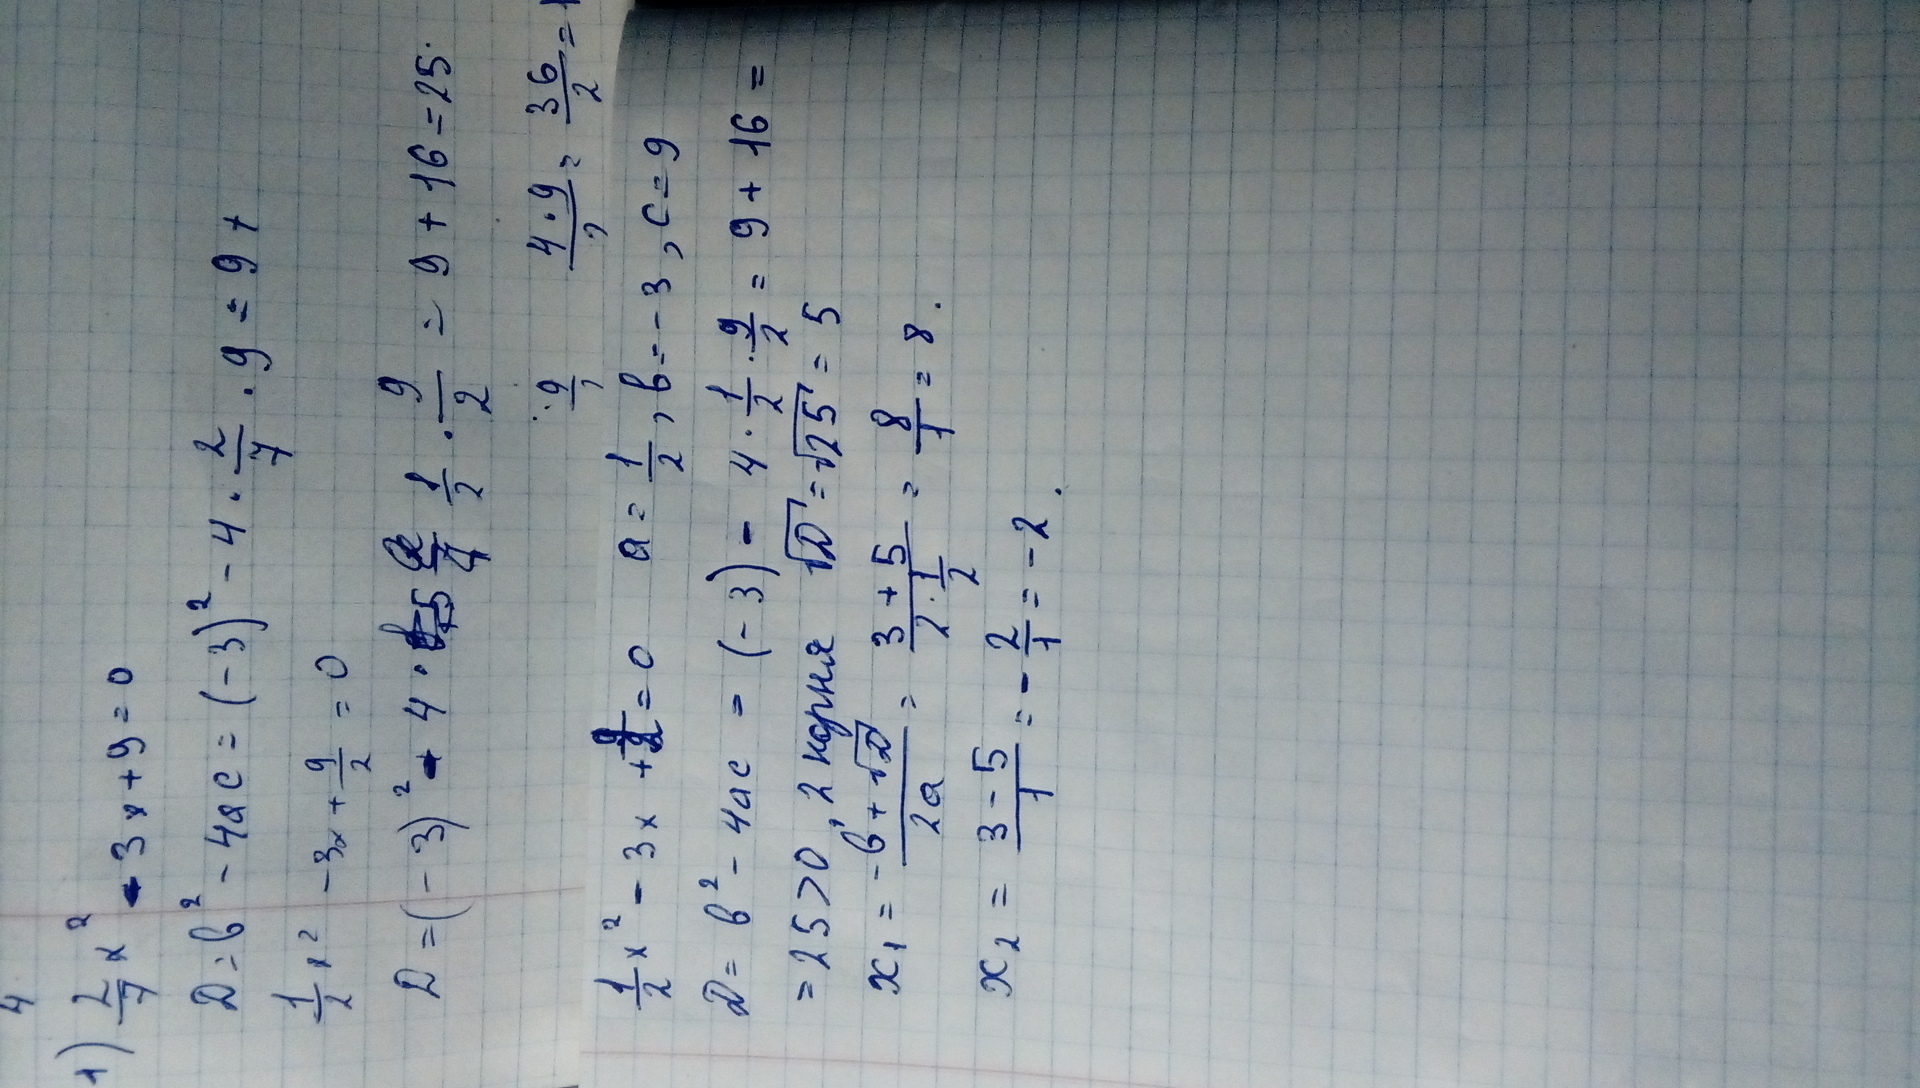 4
1) 2/7 x² - 3x + 9 = 0
D = b² - 4ac = (-3)² - 4 · 2/7 · 9 = 9 +
1/2 x² - 3x + 9/2 = 0
D = (-3)² - 4 · 1/2 · 9/2 = 9 + 16 = 25.
· 9/2 4·9/2 = 36/2 =
1/2 x² - 3x + 9/2 = 0 a = 1/2, b = -3, c = 9
D = b² - 4ac = (-3) - 4 · 1/2 · 9/2 = 9 + 16 =
= 25 > 0, 2 корня √D = √25 = 5
x₁ = -b + √D / 2a = 3 + 5 / 2 · 1/2 = 8/1 = 8.
x₂ = 3 - 5 / 1 = - 2/1 = -2.